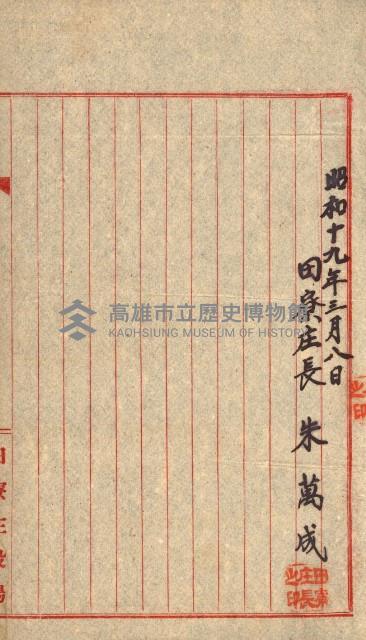 昭和十九年三月八日
田寮庄長 朱萬成
田寮庄長之印
之印
田寮庄役場
高雄市立歷史博物館
KAOHSIUNG MUSEUM OF HISTORY